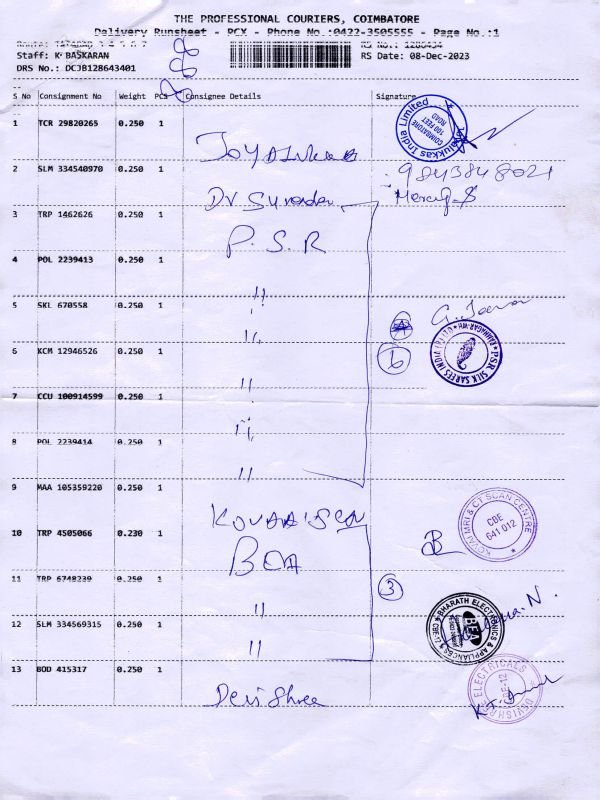 THE PROFESSIONAL COURIERS, COIMBATORE
Delivery Runsheet - PCX - Phone No.:0422-3505555 - Page No.:1
Staff: K BASKARAN
RS No.: 1286434
DRS No.: DCJB128643401
RS Date: 08-Dec-2023
S No Consignment No Weight PCS Consignee Details Signature
1 TCR 29820265 0.250 1 Joyalukkas
Joyalukkas India Limited 100 FEET ROAD COIMBATORE
2 SLM 334540970 0.250 1 9843848021
3 TRP 1462626 0.250 1 P. S. R
4 POL 2239413 0.250 1 "
5 SKL 670558 0.250 1 "
6 KCM 12946526 0.250 1 " 6
PSR SILK SAREES INDIA (P) LTD
7 CCU 100914599 0.250 1 "
8 POL 2239414 0.250 1 "
9 MAA 105359220 0.250 1
KOVAI MRI & CT SCAN CENTRE CBE 641 012
10 TRP 4505066 0.230 1 BEA
11 TRP 6748239 0.250 1 " 3
12 SLM 334569315 0.250 1 "
BHARATH ELECTRONICS & APPLIANCES CBE-12 BEA
13 BOD 415317 0.250 1 Devi Shree
DEVISHREE ELECTRICALS CBE-12